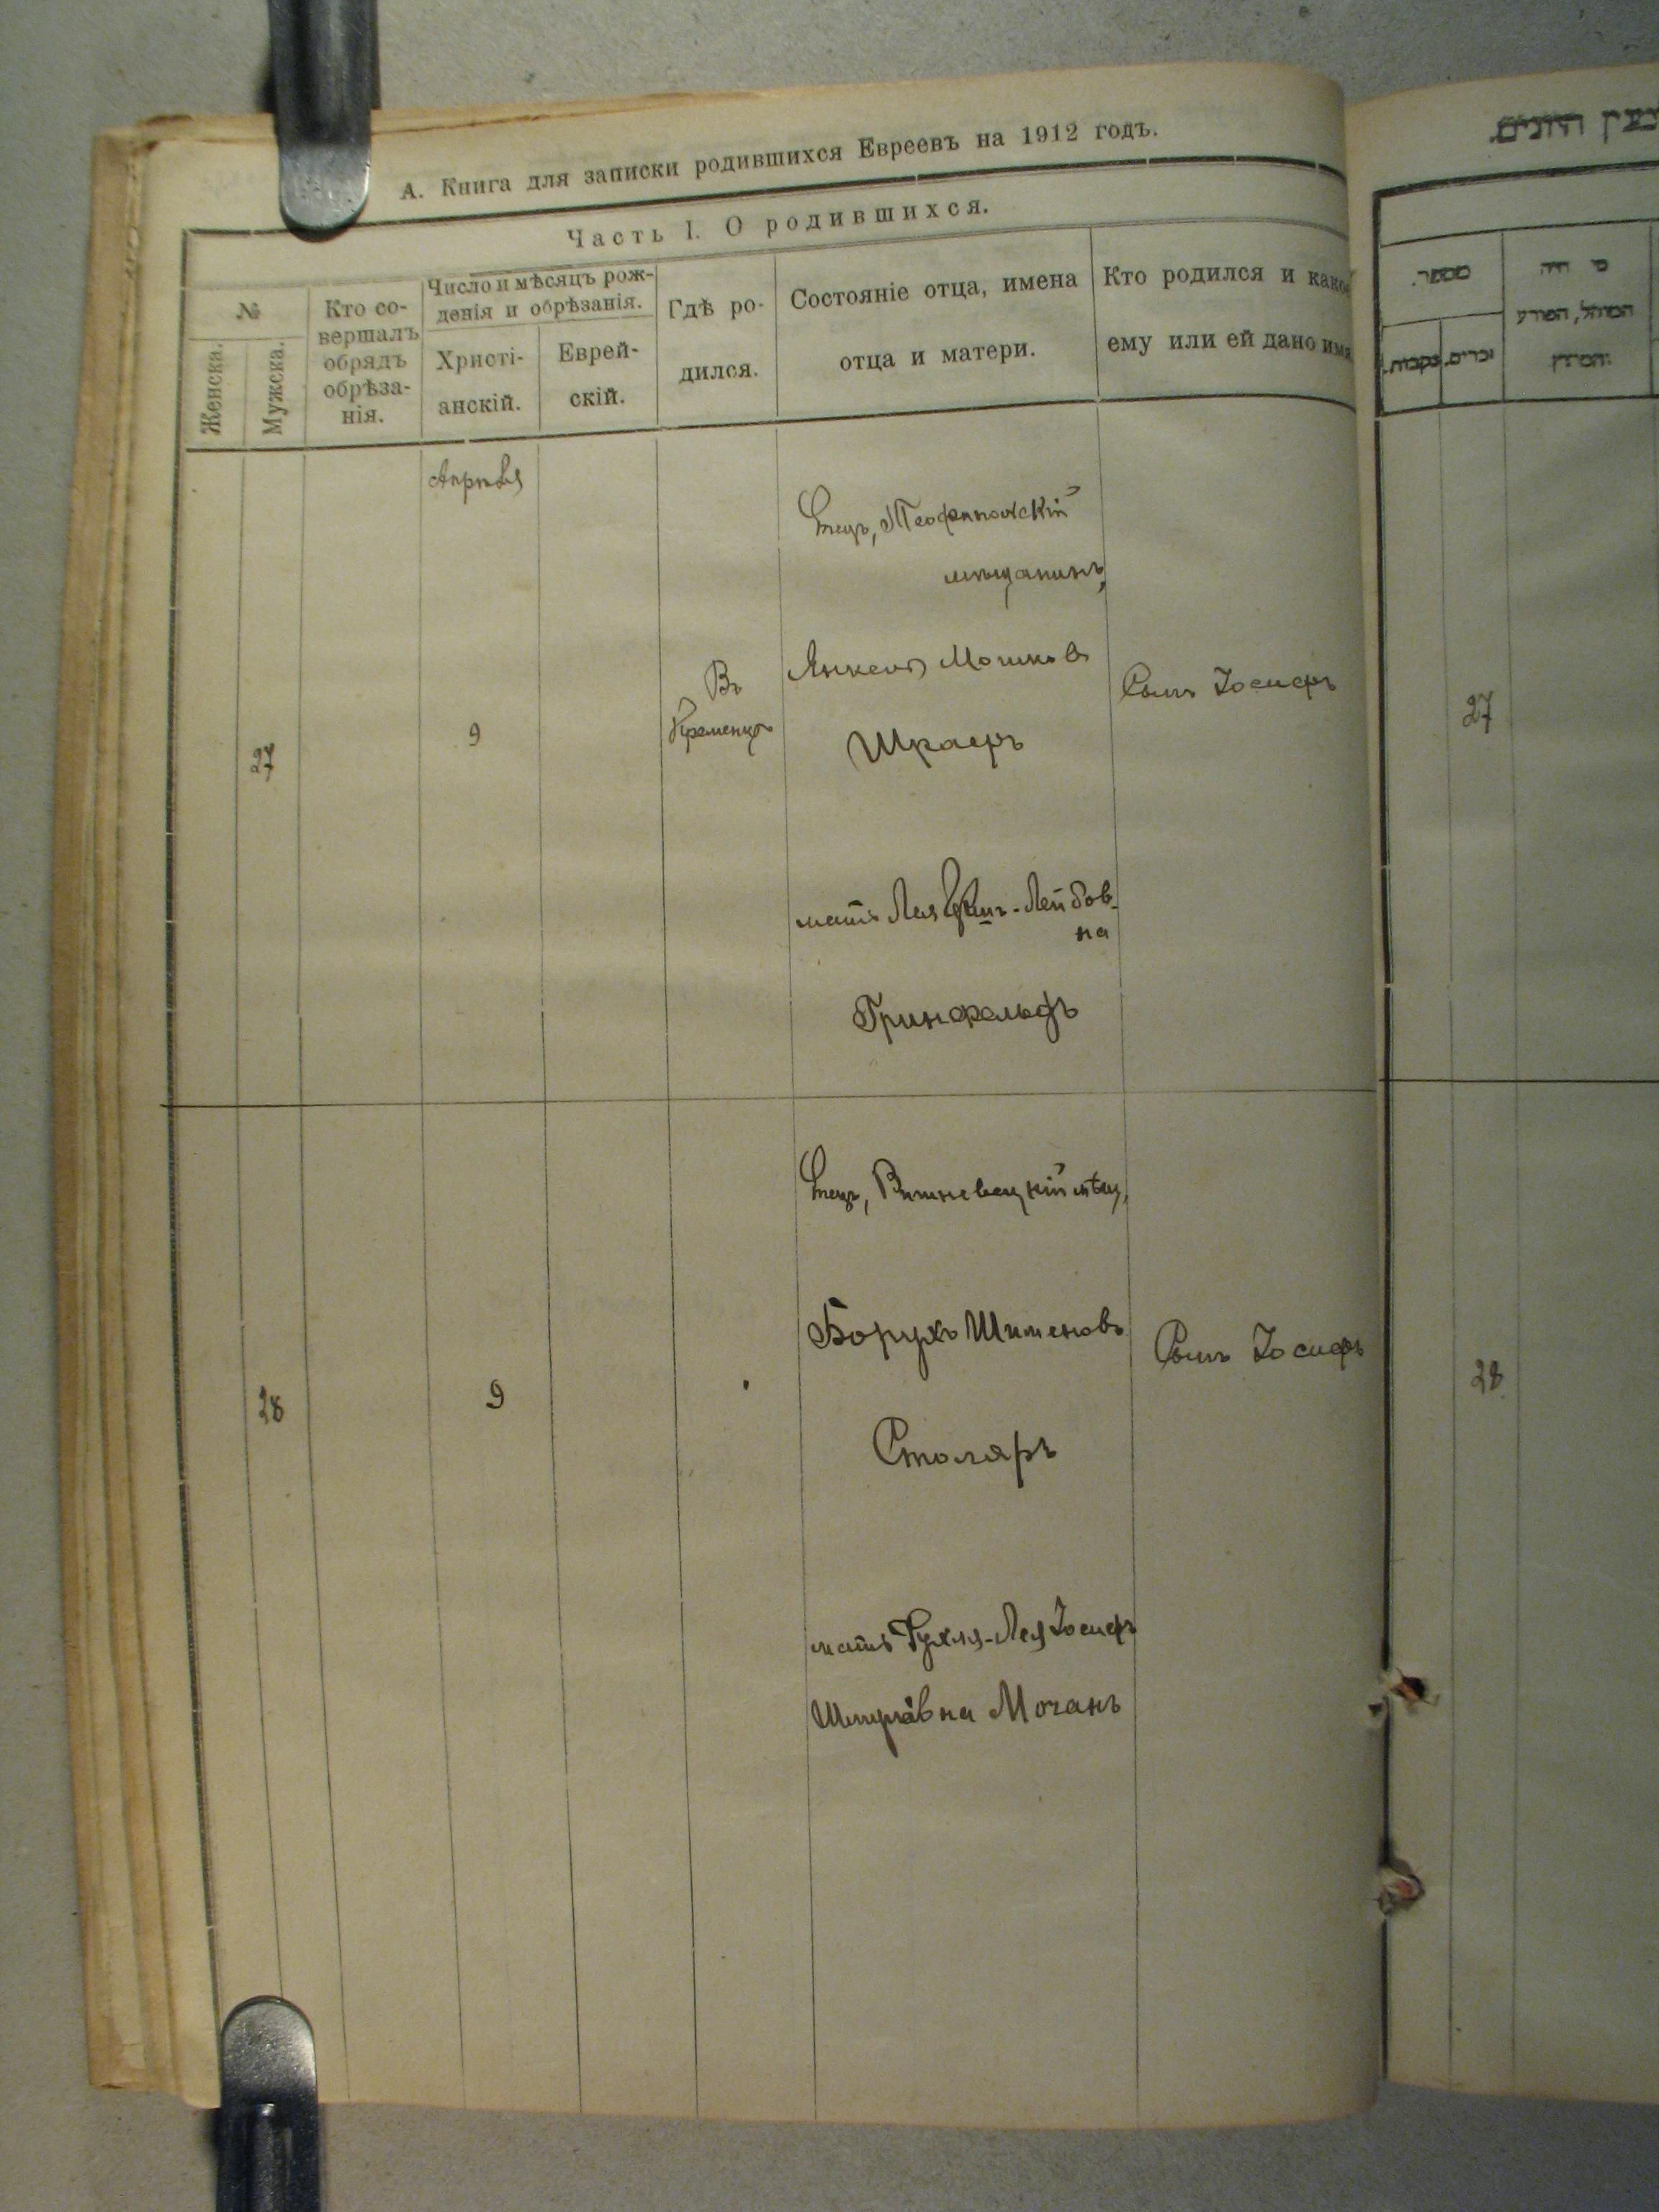 А. Книга для записки родившихся Евреевъ на 1912 годъ.
Часть I. О родившихся.
№
Женска.
Мужска.
Кто со-
вершалъ
обрядъ
обрѣза-
нія.
Число и мѣсяцъ рож-
денія и обрѣзанія.
Христі-
анскій.
Еврей-
скій.
Гдѣ ро-
дился.
Состояніе отца, имена
отца и матери.
Кто родился и какое
ему или ей дано имя
Апрѣля
27
9
Въ
Кременцѣ
Отецъ,
мѣщанинъ,
Янкель Мошковъ
Шраеръ
мать Лея Лейбов-
на
Гринфельдъ
Сынъ Іосифъ
28
9
Отецъ, Вишневецкій мѣщ,
Борухъ Шименовъ
Столяръ
мать Рухля-Лея Іосифъ
Шмулевна Мочанъ
Сынъ Іосифъ
מספר.
נקבות.
זכרים.
מי היה
המוהל, הפורע
והמוצץ
27
28